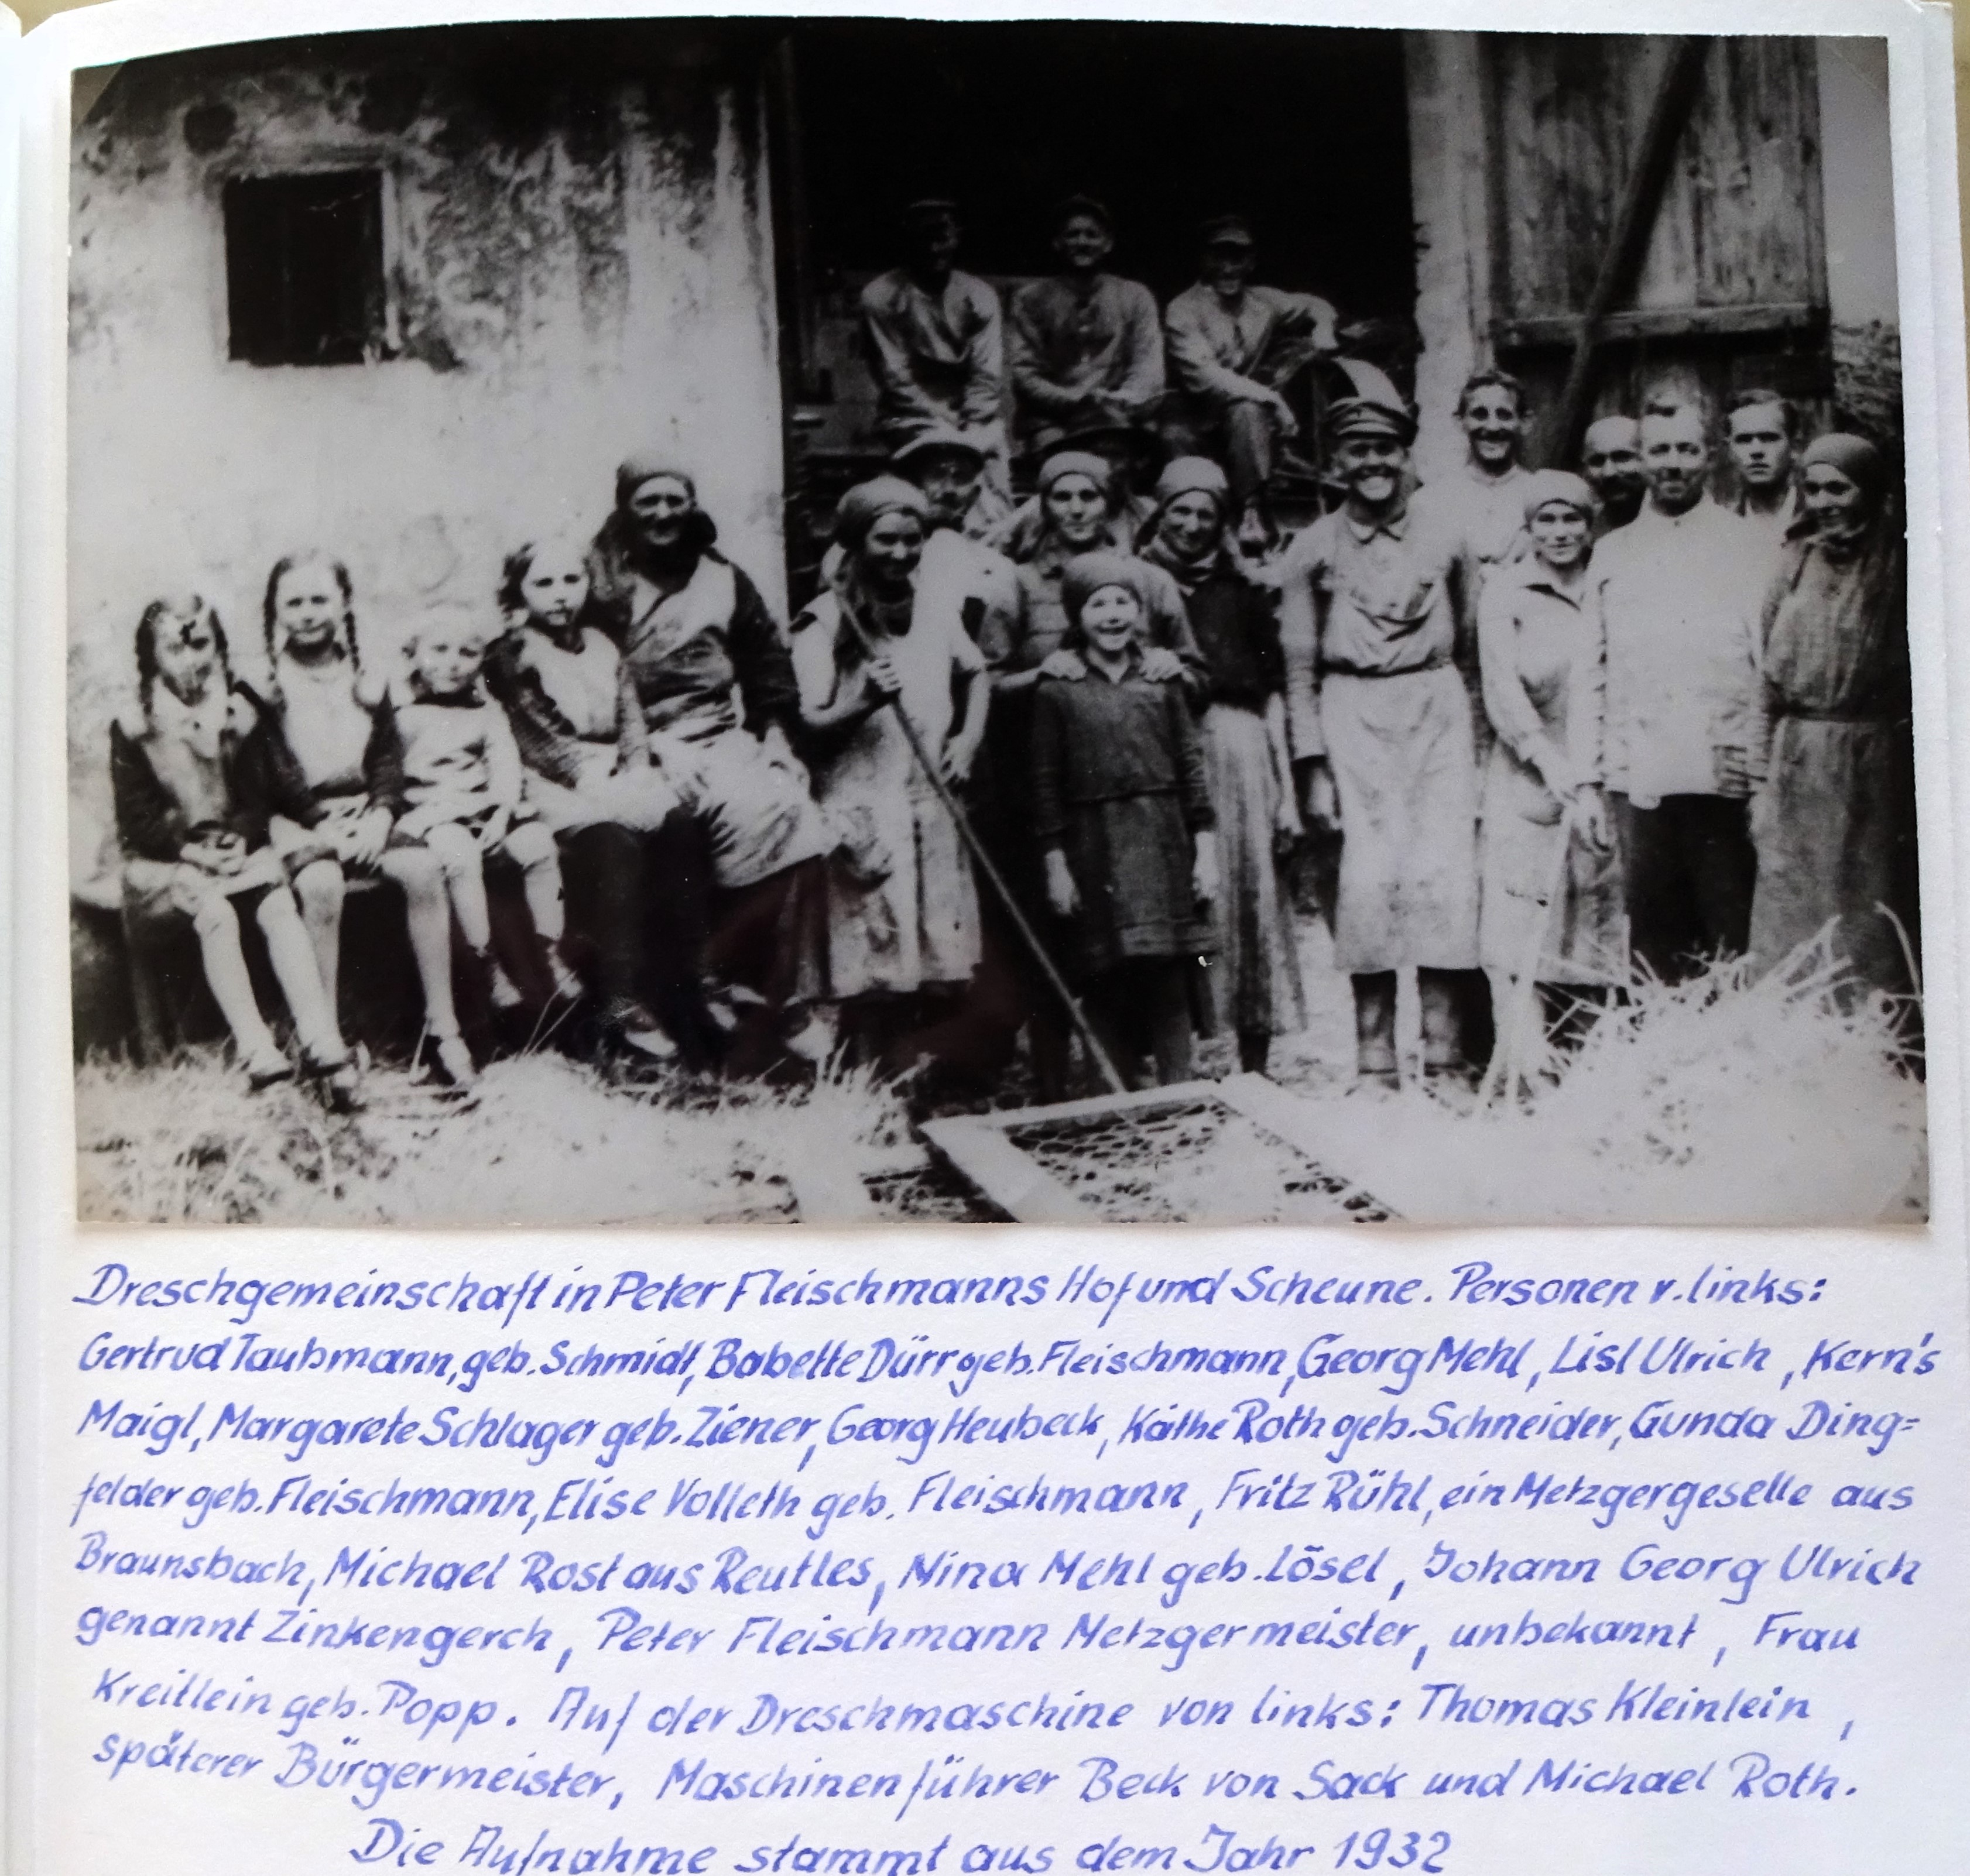 Dreschgemeinschaft in Peter Fleischmanns Hof und Scheune. Personen v. links:
Gertrud Taubmann, geb. Schmidt, Babette Dürr geb. Fleischmann, Georg Mehl, Lisl Ulrich, Kern's
Maigl, Margarete Schlager geb. Ziener, Georg Heubeck, Käthe Roth geb. Schneider, Gunda Ding=
felder geb. Fleischmann, Elise Volleth geb. Fleischmann, Fritz Rühl, ein Metzgergeselle aus
Braunsbach, Michael Rost aus Reutles, Nina Mehl geb. Lösel, Johann Georg Ulrich
genannt Zinkengerch, Peter Fleischmann Metzgermeister, unbekannt, Frau
Kreitlein geb. Popp. Auf der Dreschmaschine von links: Thomas Kleinlein,
späterer Bürgermeister, Maschinenführer Beck von Sack und Michael Roth.
Die Aufnahme stammt aus dem Jahr 1932